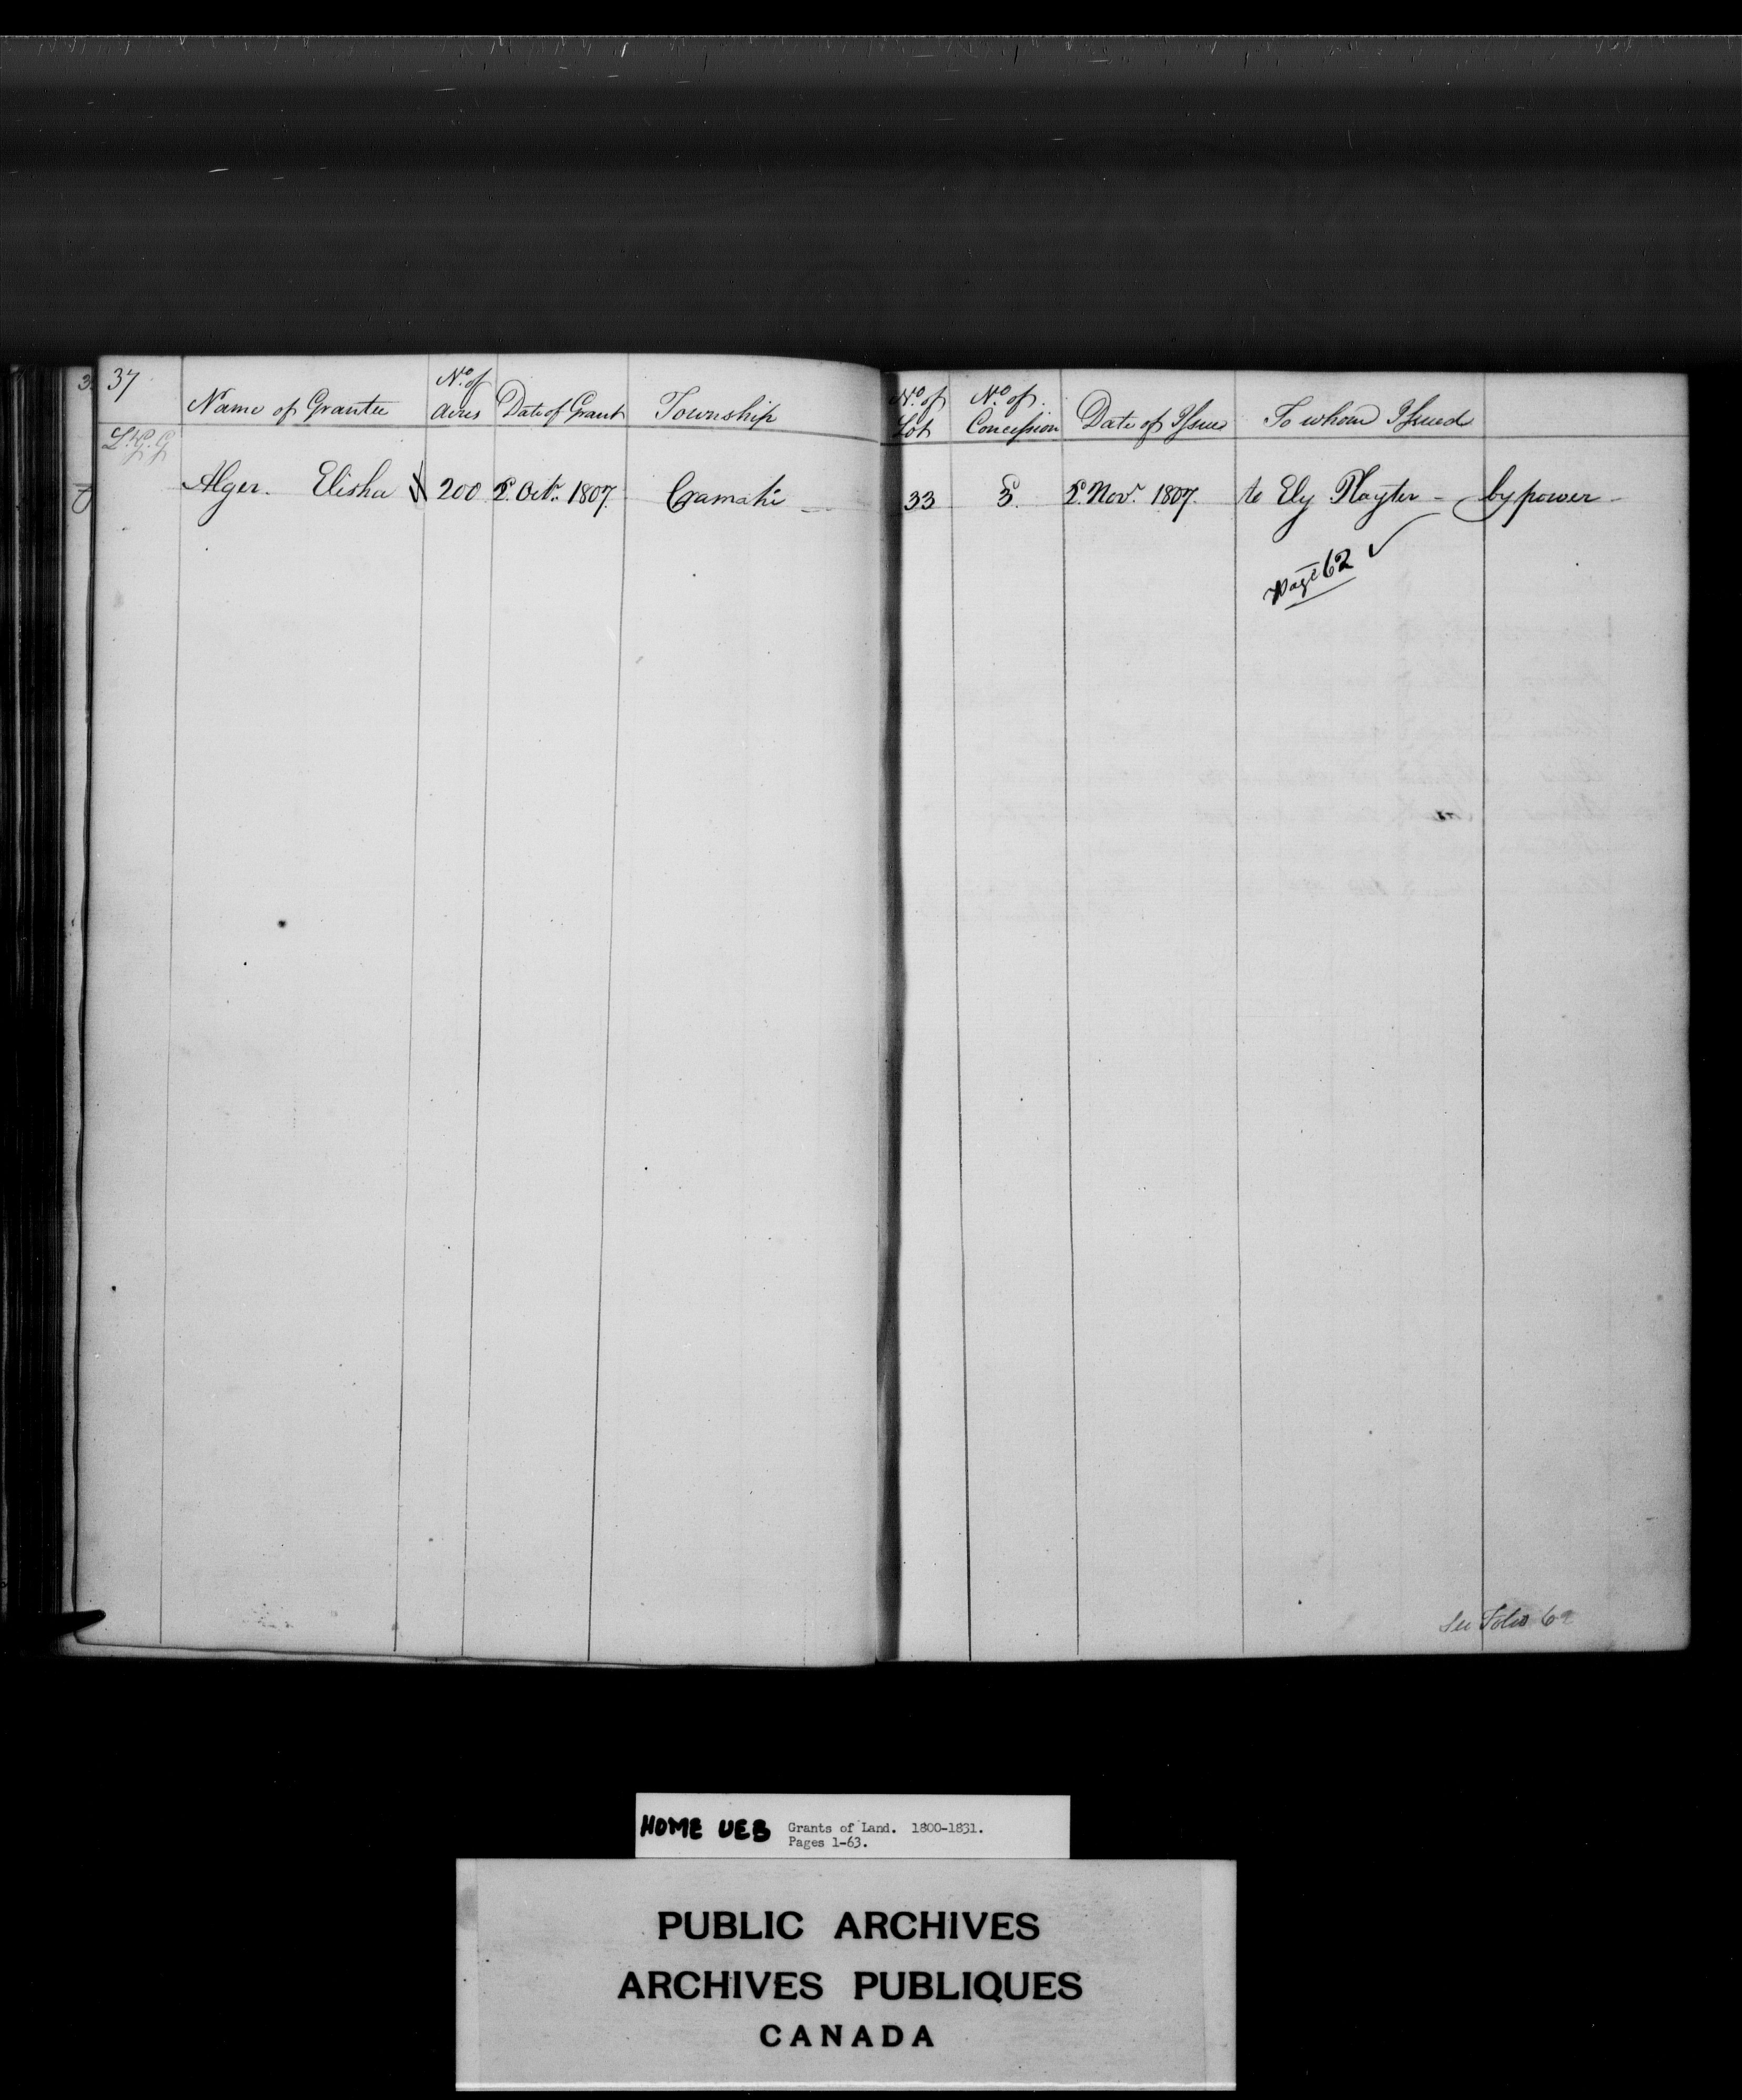 37
Name of Grantee
No. of
Acres
Date of Grant
Township
No. of
Lot
No. of
Concession
Date of Issue
To whom Issued
Alger. Elisha 200 2. Octr. 1807. Cramahi 33 3. 2. Novr. 1807. to Ely Playter - by power -
Page 62
See Folio 62
HOME UEB Grants of Land. 1800-1831.
Pages 1-63.
PUBLIC ARCHIVES
ARCHIVES PUBLIQUES
CANADA